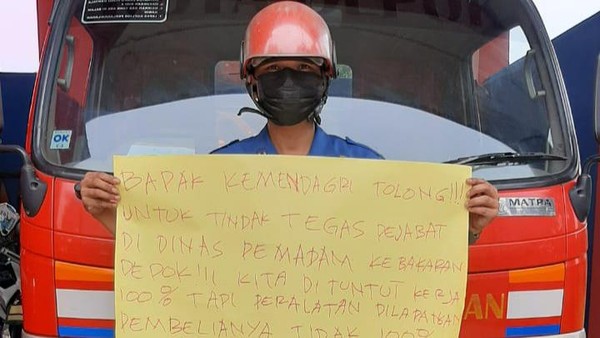 OK
MATRA
AN
BAPAK KEMENDAGRI TOLONG!!!
UNTUK TINDAK TEGAS DEJABAT
DI DINAS PEMADAM KEBAKARAN
DEPOK!!! KITA DITUNTUT KERJA
100% TAPI PERALATAN DILAPATKAN
PEMBELIANYA TIDAK 100%